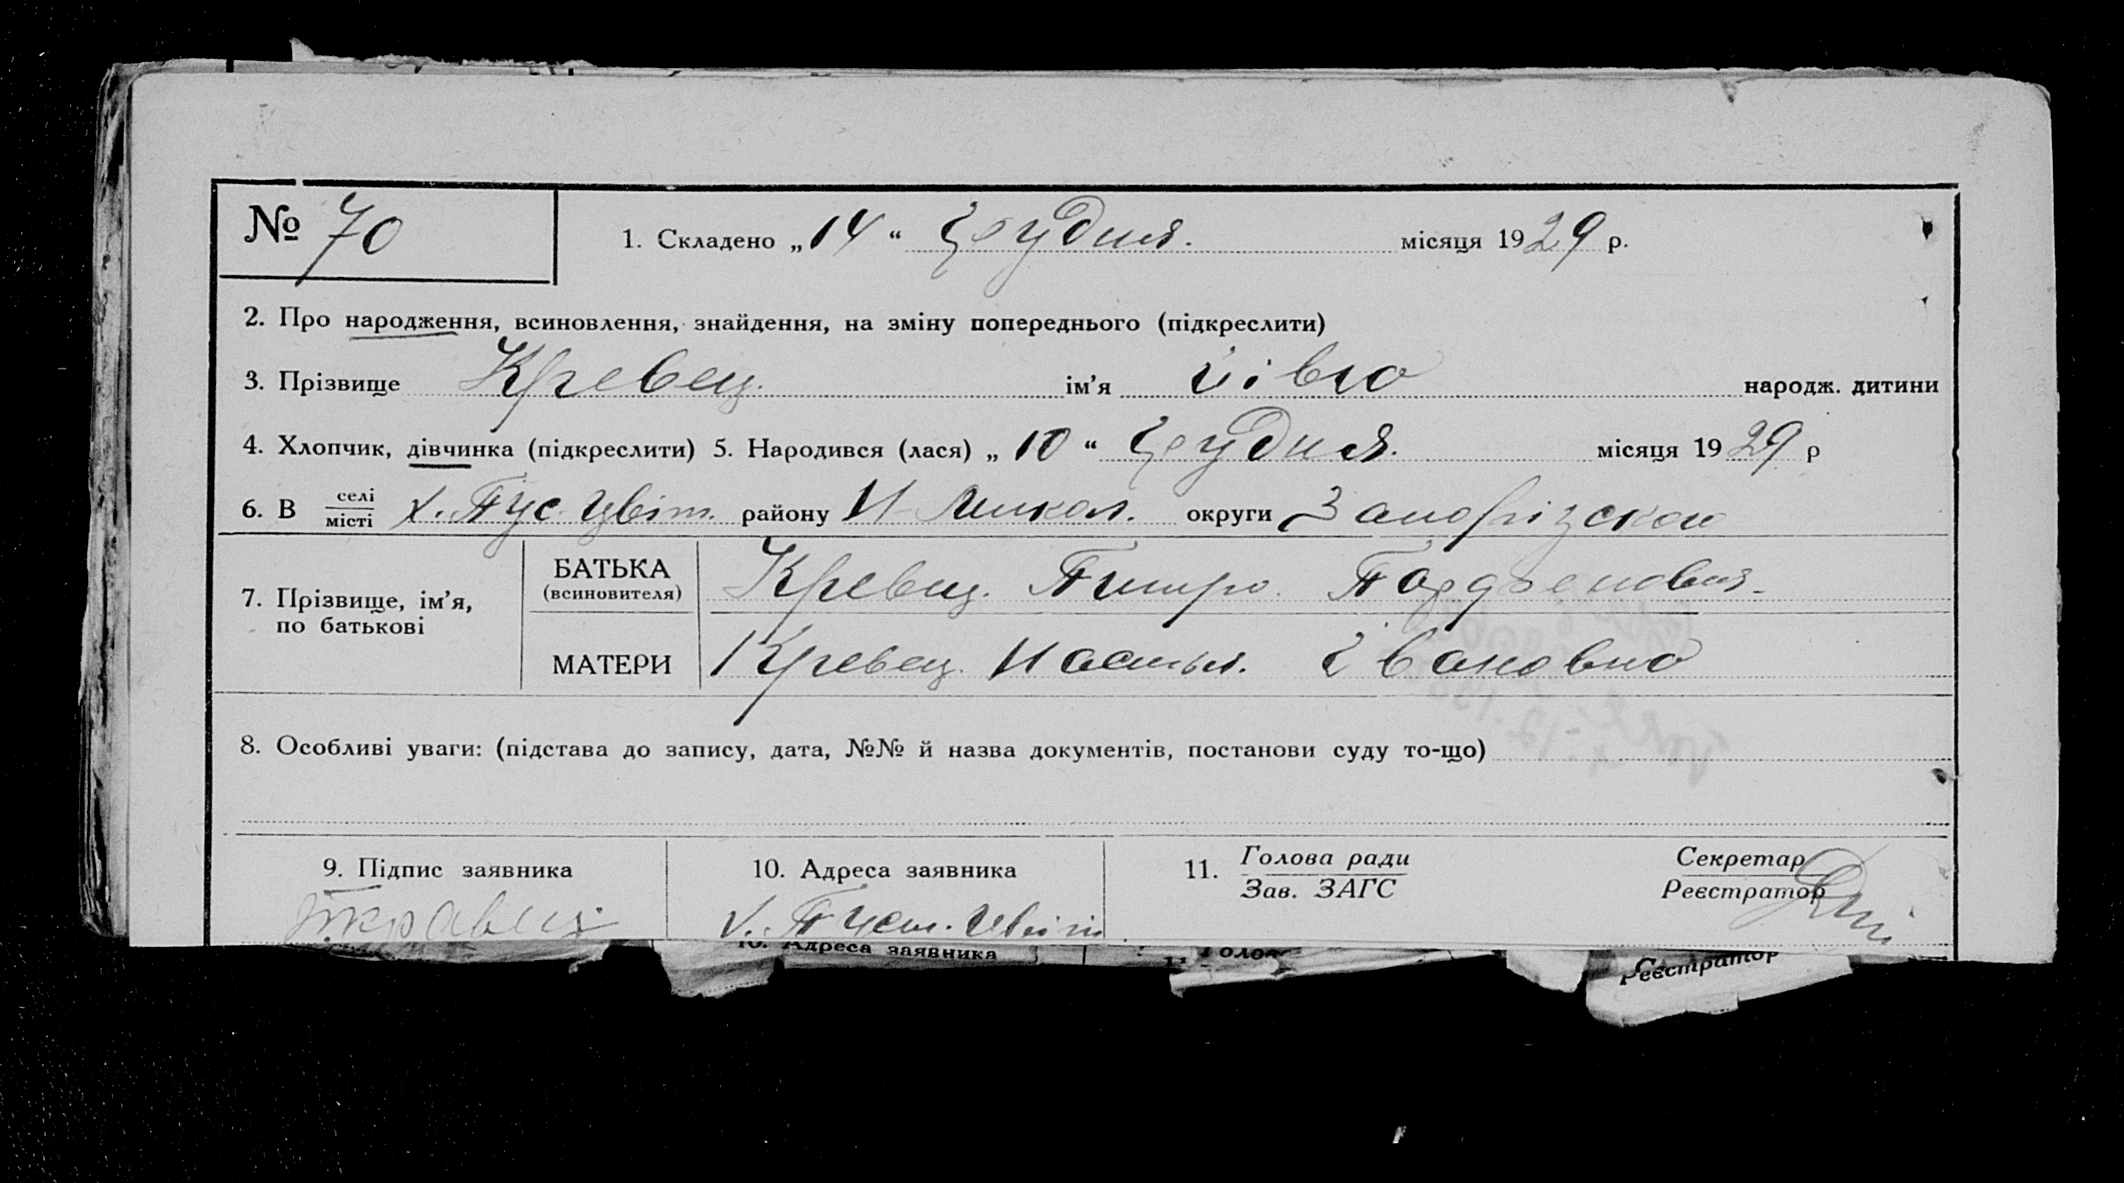 № 70
1. Складено „14“ Грудня. місяця 1929 р.
2. Про народження, всиновлення, знайдення, на зміну попереднього (підкреслити)
3. Прізвище Кревец. ім’я народж. дитини
4. Хлопчик, дівчинка (підкреслити) 5. Народився (лася) „10“ Грудня. місяця 1929 р
6. В селі місті х. Пус. Цвіт. району Н-Микол. округи Запорізской
7. Прізвище, ім’я, по батькові
БАТЬКА (всиновителя) Кревец. Питро.
МАТЕРИ Кревец. Настья. Івановна
8. Особливі уваги: (підстава до запису, дата, №№ й назва документів, постанови суду то-що)
9. Підпис заявника 10. Адреса заявника 11. Голова ради Зав. ЗАГС Секретар Реєстратор
х. Пуст. Цвіт
10. Адреса заявника
Реєстратор